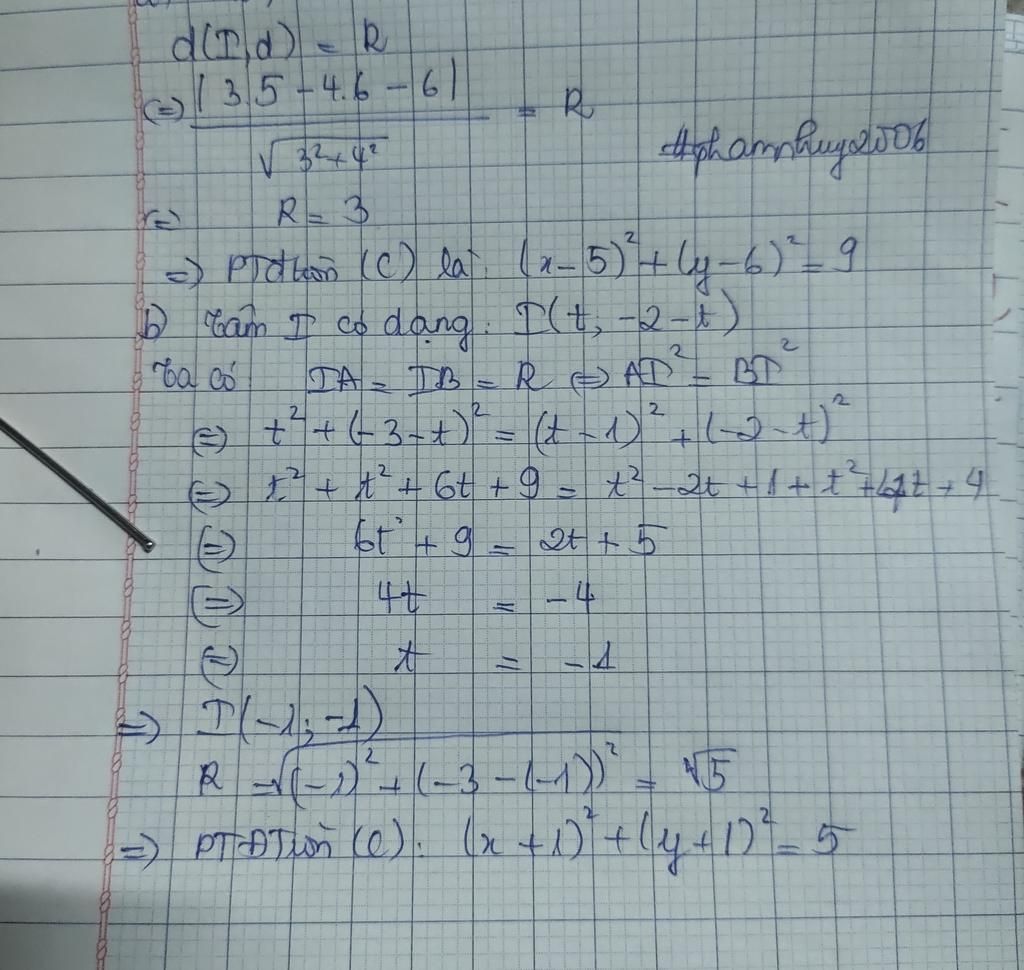 d(I,d) = R
(=) |3.5 - 4.6 - 6| / √(3² + 4²) = R
#phamhuy2506
=) R = 3
=) PT đtròn (C) là: (x - 5)² + (y - 6)² = 9
b) Tâm I có dạng: I(t, -2 - t)
Ta có IA = IB = R (=) AI² = BI²
(=) t² + (-3 - t)² = (t - 1)² + (-2 - t)²
(=) t² + t² + 6t + 9 = t² - 2t + 1 + t² + 4t + 4
(=) 6t + 9 = 2t + 5
(=) 4t = -4
(=) t = -1
=) I(-1; -1)
R = √((-1)² + (-3 - (-1))²) = √5
=) PTĐTròn (C): (x + 1)² + (y + 1)² = 5